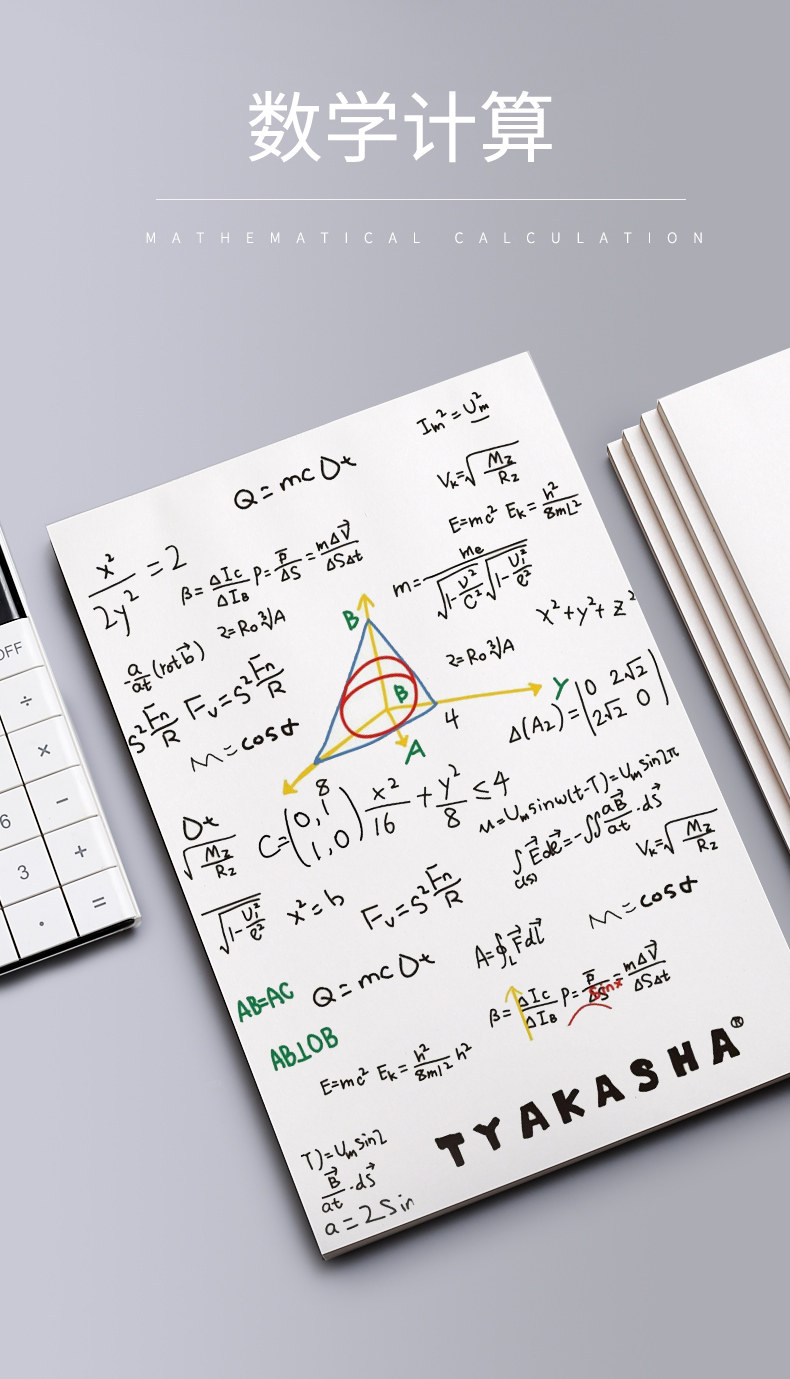 数学计算
MATHEMATICAL CALCULATION
Im² = Um²
Q = mc Dt
Vk = √(M2/R2)
E=mc² Ek = h²/8mL²
x²/2y² = 2
β = ΔIc/ΔIB P = P⃗/ΔS = mΔV⃗/ΔSΔt
m = me/√(1-v²/c²) √(1-Ui²/e²)
x²+y²+z²
2=R₀ ³√A
a/at (rot b⃗)
2=R₀ ³√A
B
S² Fn/R Fv = S² Fn/R
B
Y
Δ(A2) = |0 2√2
2√2 0|
M = cosα
4
A
8
Dt
√(M2/R2)
C = (0,1
1,0) x²/16 + y²/8 ≤ 4
u = Um sinω(t-T) = Um sin2π
∫c(s) E⃗dl⃗ = -∬ aB⃗/at · dS⃗
Vk = √(M2/R2)
√(1-Ui²/e²)
x² = b
Fv = S² Fn/R
M = cosα
A = ∮L F⃗dl⃗
AB=AC
Q = mc Dt
β = ΔIc/ΔIB P = P⃗/ΔS = mΔV⃗/ΔSΔt
sinx
AB⊥OB
E=mc² Ek = h²/8ml² h²
TYAKASHA®
T)=Um sin2
B⃗/at · dS⃗
a = 2Sin